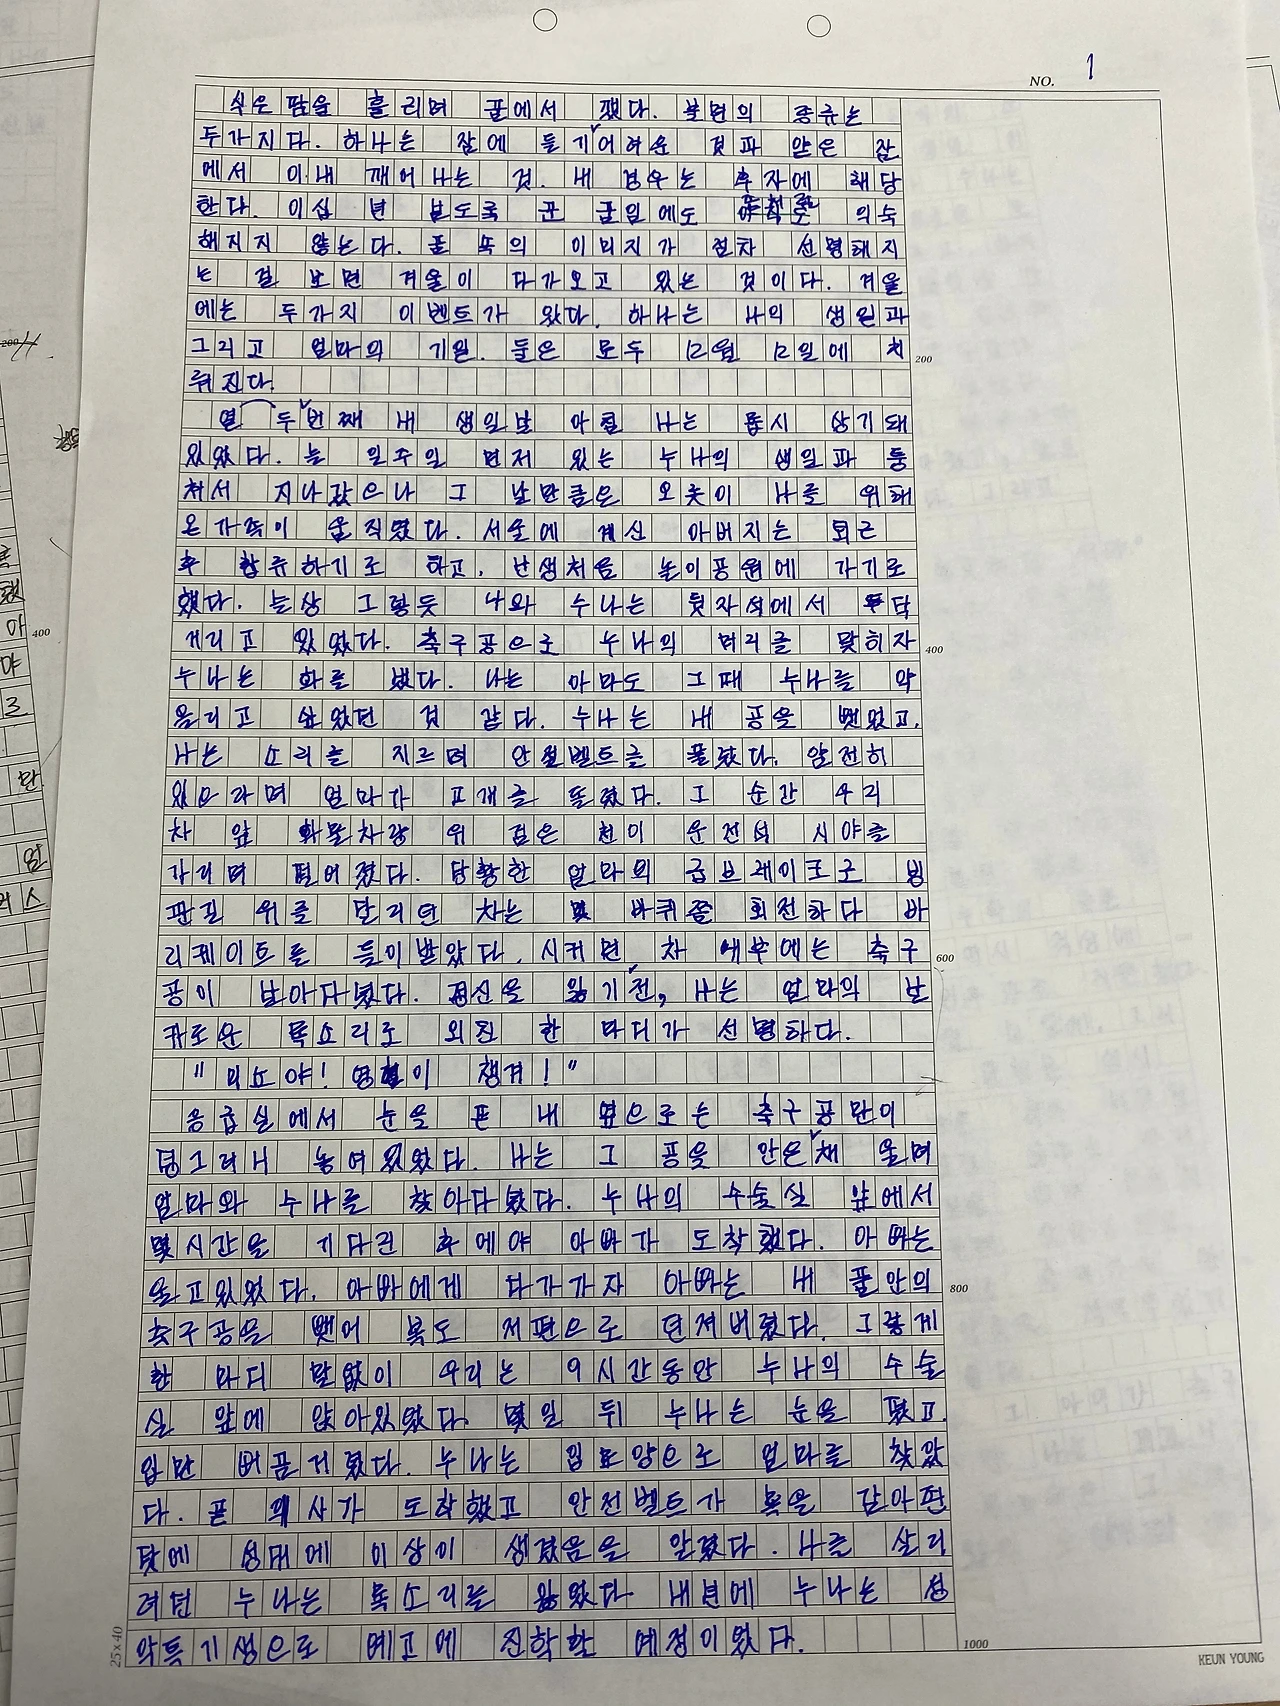 NO. 1
식은 땀을 흘리며 꿈에서 깼다. 불면의 종류는
두가지다. 하나는 잠에 들기어려운 것과 얕은 잠
에서 이내 깨어나는 것. 내 경우는 후자에 해당
한다. 이십 년 보도록 꾼 꿈일에도 의숙
해지지 않는다. 꿈 속의 이미지가 점차 선명해지
는 걸 보면 겨울이 다가오고 있는 것이다. 겨울
에는 두가지 이벤트가 있다. 하나는 나의 생일과
그리고 엄마의 기일. 둘은 모두 12월 12일에 치
200
뤄진다.
열 두번째 내 생일날 아침 나는 몹시 상기돼
있었다. 늘 일주일 먼저 있는 누나의 생일과 퉁
쳐서 지나갔으나 그 날만큼은 오롯이 나를 위해
온가족이 움직였다. 서울에 계신 아버지는 퇴근
후 합류하기로 하고, 난생처음 놀이공원에 가기로
했다. 늘상 그렇듯 나와 누나는 뒷자석에서 투닥
거리고 있었다. 축구공으로 누나의 머리를 맞히자
400
누나는 화를 냈다. 나는 아마도 그때 누나를 약
올리고 싶었던 것 같다. 누나는 내 공을 뺏었고,
나는 소리를 지르며 안전벨트를 풀렀다. 얌전히
있으라며 엄마가 고개를 돌렸다. 그 순간 우리
차 앞 화물차량 위 검은 천이 운전석 시야를
가리며 떨어졌다. 당황한 엄마의 급브레이크로 빙
판길 위를 달리던 차는 몇 바퀴쯤 회전하다 바
리케이트를 들이받았다. 시커먼 차 내부에는 축구
600
공이 날아다녔다. 정신을 잃기전, 나는 엄마의 날
카로운 목소리로 외친 한 마디가 선명하다.
"미소야! 영현이 챙겨!"
응급실에서 눈을 뜬 내 옆으로는 축구공만이
덩그러니 놓여있었다. 나는 그 공을 안은채 울며
엄마와 누나를 찾아다녔다. 누나의 수술실 앞에서
몇시간을 기다린 후에야 아빠가 도착했다. 아빠는
울고있었다. 아빠에게 다가가자 아빠는 내 품안의
800
축구공을 뺏어 복도 저편으로 던져버렸다. 그렇게
한 마디 말없이 우리는 9시간동안 누나의 수술
실 앞에 앉아있었다. 몇일 뒤 누나는 눈을 떴고,
입만 버끔거렸다. 누나는 입모양으로 엄마를 찾았
다. 곧 의사가 도착했고 안전벨트가 목을 감아판
탓에 성대에 이상이 생겼음을 알렸다. 나를 살리
려던 누나는 목소리를 잃었다. 내년에 누나는 성
악특기생으로 예고에 진학할 예정이었다.
1000
25×40
KEUN YOUNG